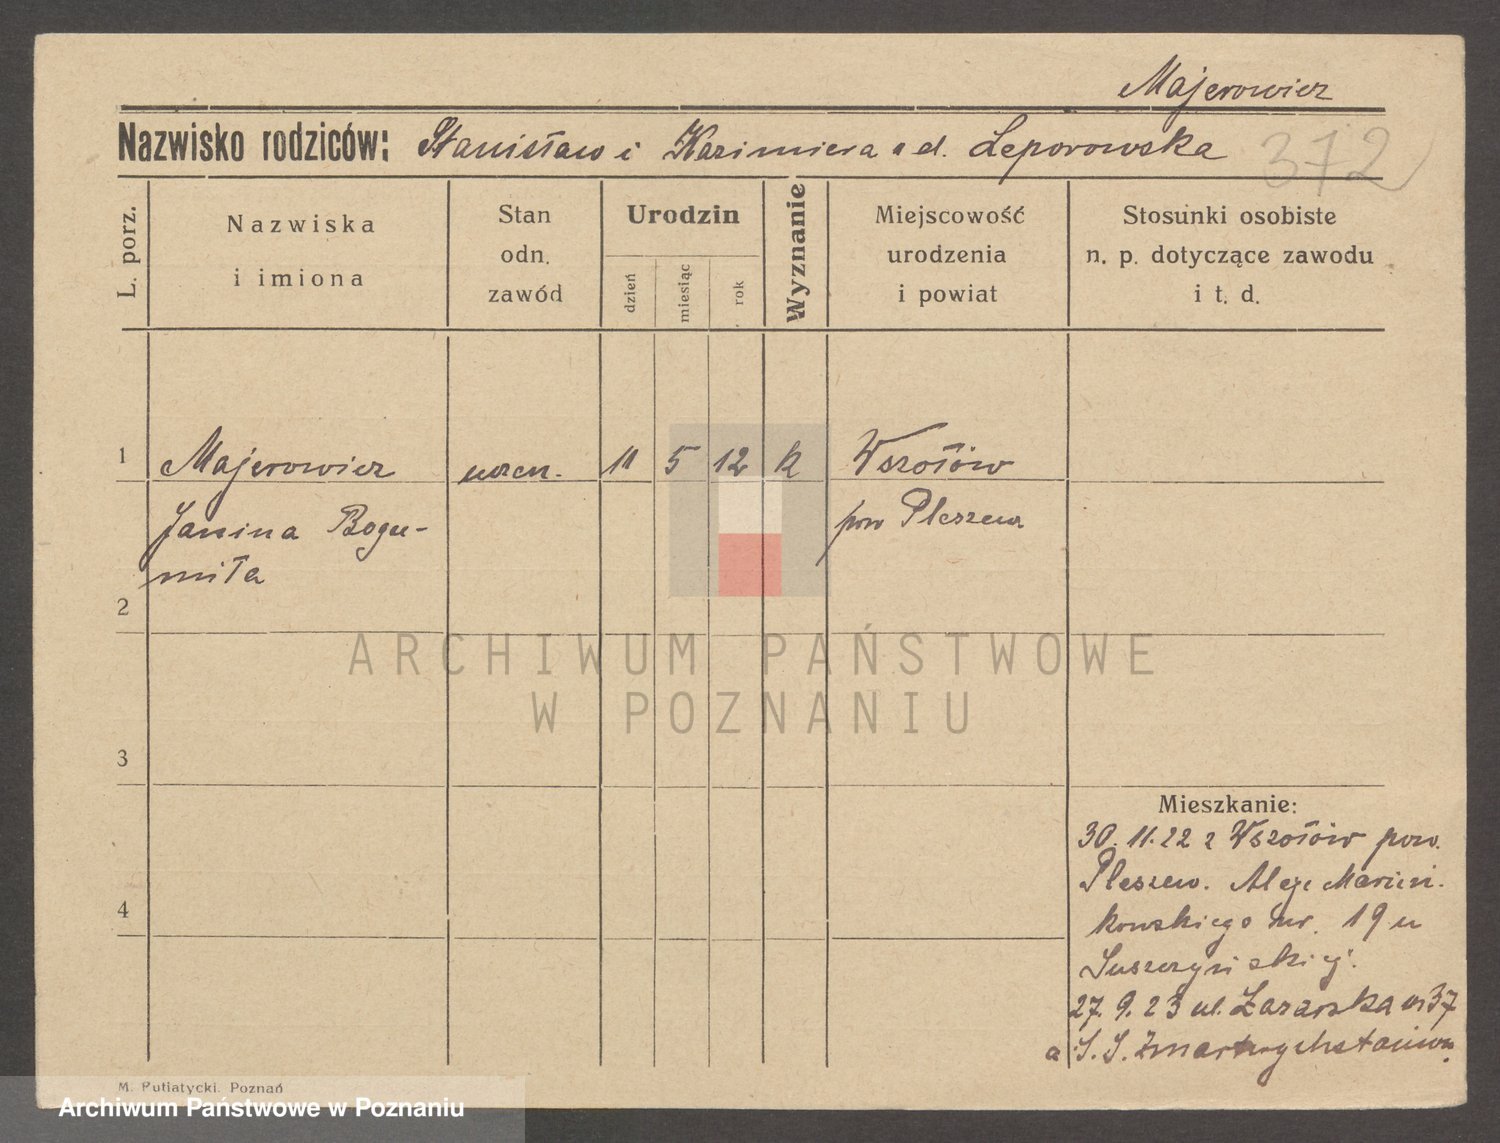 Majerowicz
Nazwisko rodziców: Stanisław i Kazimiera z d. Leporowska 372
L. porz.
Nazwiska
i imiona
Stan
odn.
zawód
Urodzin
dzień
miesiąc
rok
Wyznanie
Miejscowość
urodzenia
i powiat
Stosunki osobiste
n. p. dotyczące zawodu
i t. d.
1 Majerowicz uczen. 11 5 12 k Wszołów
Janina Bogu- pow Pleszew
miła
2
ARCHIWUM PAŃSTWOWE
W POZNANIU
3
Mieszkanie:
30.11.22 z Wszołów pow.
Pleszew. Aleje Marcin.
4
kowskiego nr. 19 u
27.9.23 ul. nr 37
a S.S. Zmartwychstaniow.
M. Putiatycki. Poznań
Archiwum Państwowe w Poznaniu